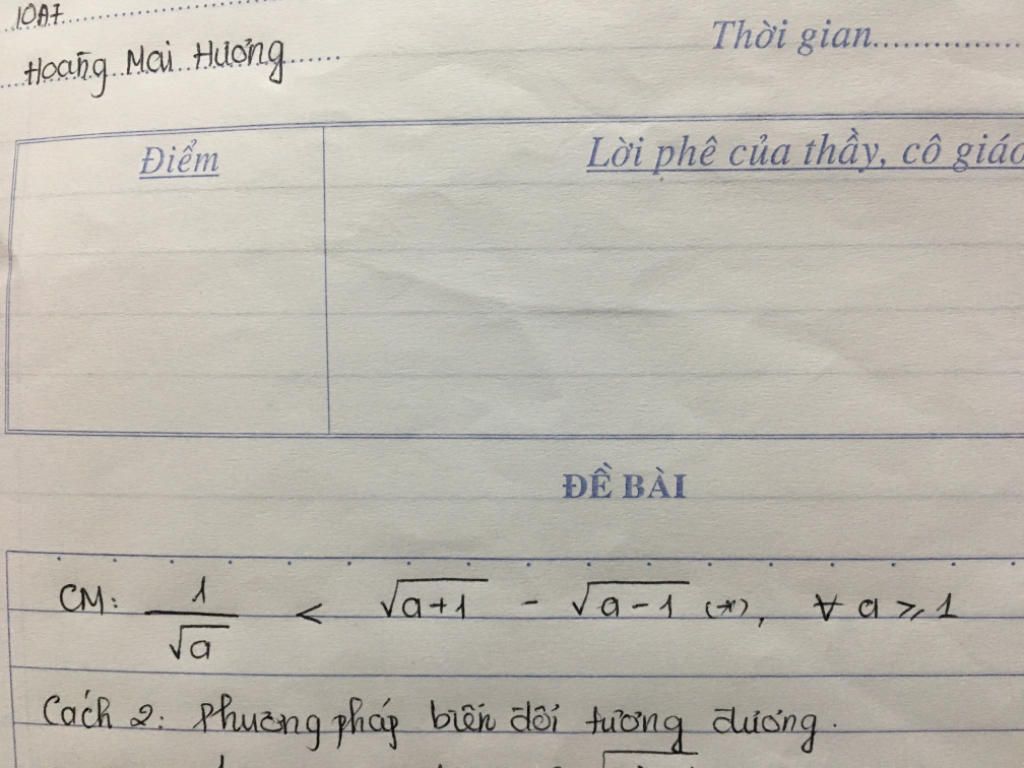 10A7
Hoàng Mai Hương
Thời gian
Điểm
Lời phê của thầy, cô giáo
ĐỀ BÀI
CM: 1/√a < √(a+1) - √(a-1) (*), ∀ a ≥ 1
Cách 2: Phương pháp biến đổi tương đương.